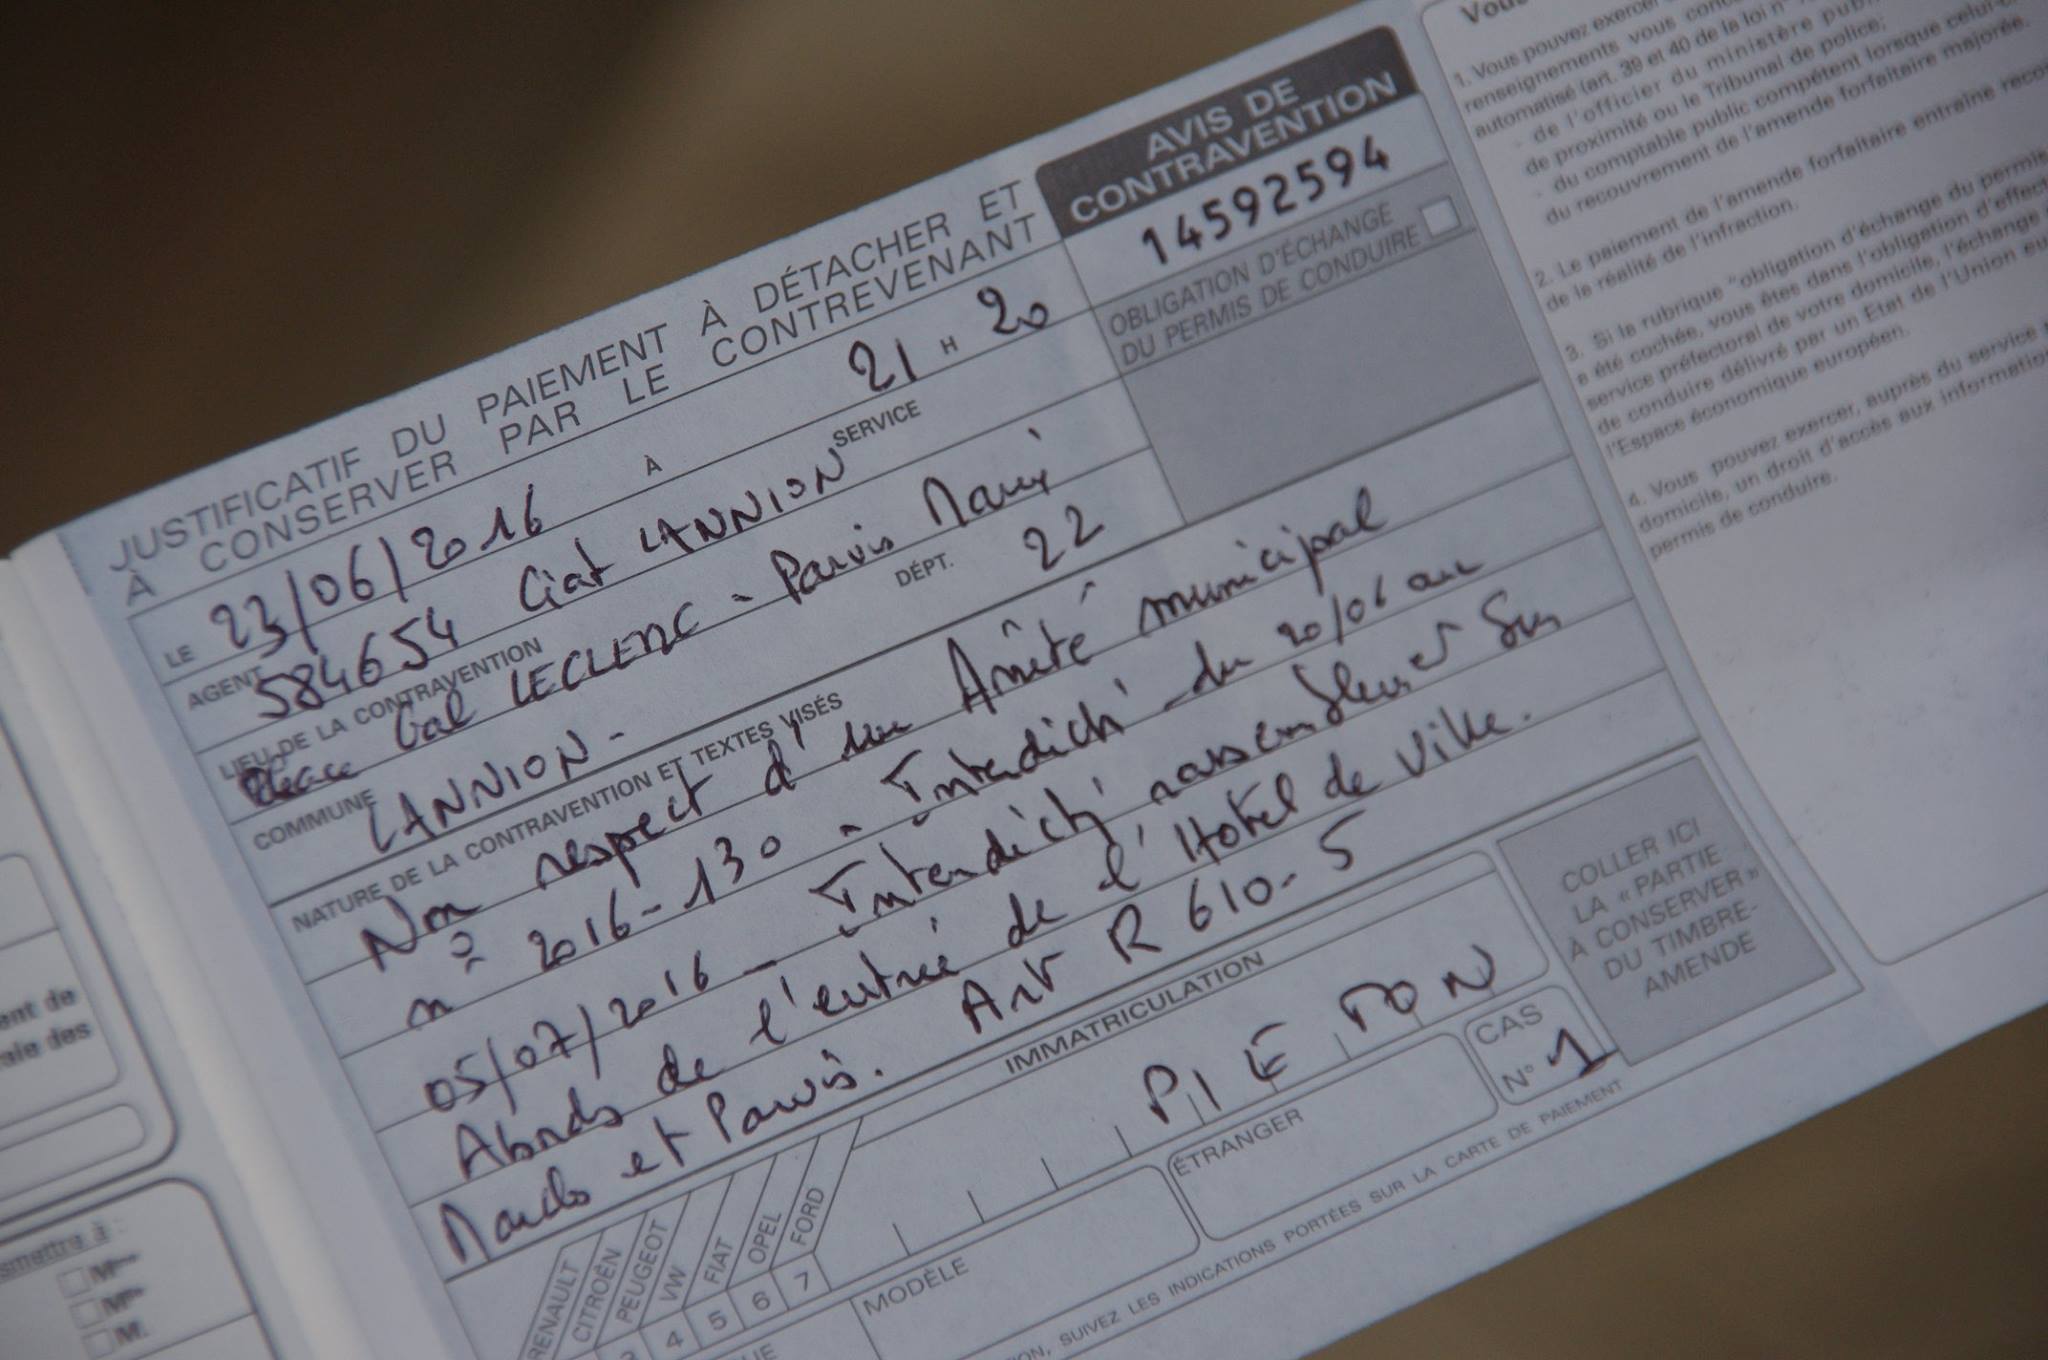 JUSTIFICATIF DU PAIEMENT À DÉTACHER ET
À CONSERVER PAR LE CONTREVENANT
AVIS DE
CONTRAVENTION
14592594
OBLIGATION D'ÉCHANGE
DU PERMIS DE CONDUIRE
LE 23/06/2016 À 21 H 20
AGENT 584654 Ciat LANNION SERVICE
LIEU DE LA CONTRAVENTION
Place Gal LECLERC - Parvis Mairie
COMMUNE LANNION - DÉPT. 22
NATURE DE LA CONTRAVENTION ET TEXTES VISÉS
Non respect d'un Arrêté municipal
n° 2016-130 - Interdict° du 20/06 au
05/07/2016 - Interdict° rassemblement sur
Abords de l'entrée de l'Hotel de Ville.
et Parvis. Art R 610-5
IMMATRICULATION
PIETON
CAS
N° 1
COLLER ICI
LA « PARTIE
À CONSERVER »
DU TIMBRE-
AMENDE
RENAULT
CITROËN
PEUGEOT
VW
FIAT
OPEL
FORD
4 5 6 7
MODÈLE
ÉTRANGER
SUIVEZ LES INDICATIONS PORTÉES SUR LA CARTE DE PAIEMENT
1. Vous pouvez exercer
renseignements vous
automatisé (art. 39 et 40 de la loi n°
- de l'officier du ministère
de proximité ou le Tribunal de police;
- du comptable public compétent lorsque
du recouvrement de l'amende forfaitaire majorée.
2. Le paiement de l'amende forfaitaire entraîne
de la réalité de l'infraction.
3. Si la rubrique "obligation d'échange du permis
a été cochée, vous êtes dans l'obligation
service préfectoral de votre domicile, l'échange
de conduire délivré par un Etat de l'Union
l'Espace économique européen.
4. Vous pouvez exercer, auprès du service
domicile, un droit d'accès aux
permis de conduire.
M.